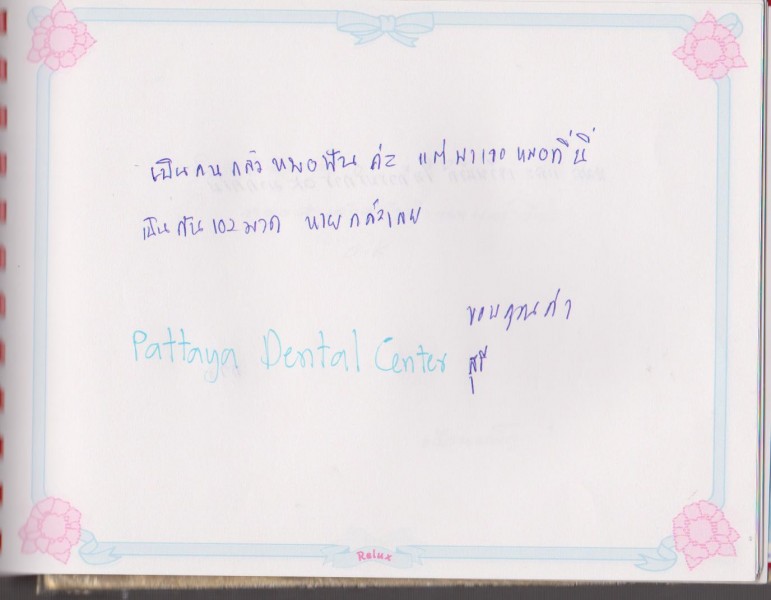 เป็นคนกลัวหมอฟันค่ะ แต่มาเจอหมอที่นี่
เป็นกันเองมาก หายกลัวเลย
ขอบคุณค่ะ
Pattaya Dental Center
Relux